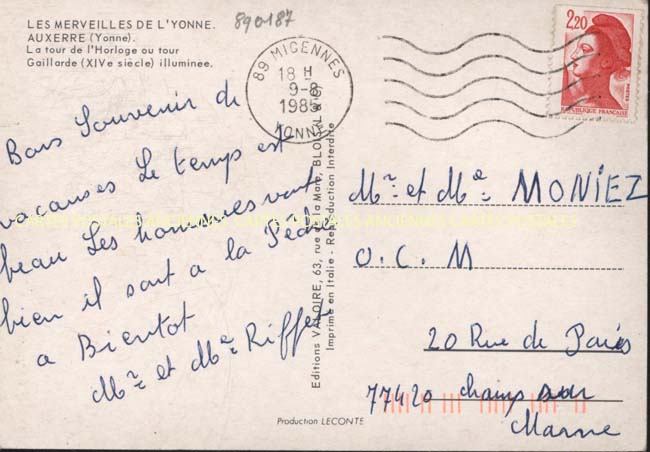 LES MERVEILLES DE L'YONNE.
AUXERRE (Yonne).
La tour de l'Horloge ou tour
Gaillarde (XIVe siècle) illuminée.
890187
89 MIGENNES
18 H
9-8
1985
YONNE
2,20
RÉPUBLIQUE FRANÇAISE
POSTES
Bons Souvenir de
vacances Le temps est
beau Les hommes vont
bien il sont a la Pêche
a Bientot
Mr et Me Riffet
Editions VALOIRE, 63, rue de la Mare, BLOIS
Imprimé en Italie - Reproduction Interdite
Mr et Me MONIEZ
O.C.M
20 Rue de Paris
77420 champ sur
Marne
Production LECONTE